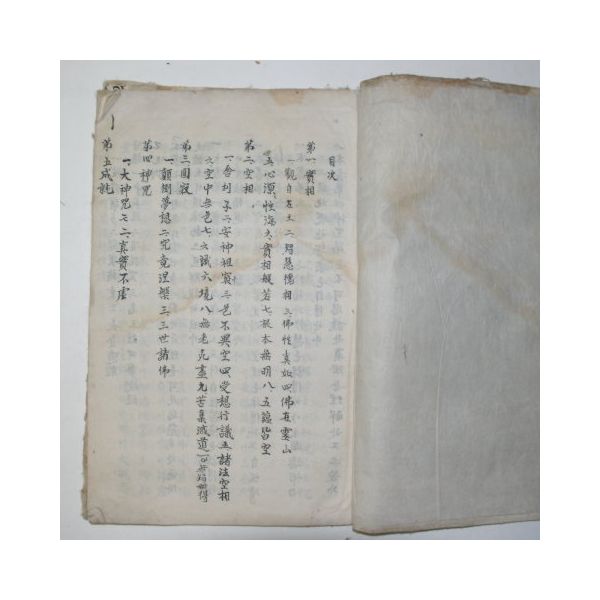 目次
第一 實相
一、觀自在土 二、智慧德相 三、佛性眞如 四、佛在靈山
五、心源性海 六、實相般若 七、根本無明 八、五蘊皆空
第二 空相
一、舍利子 二、安神祖竅 三、色不異空 四、受想行識 五、諸法空相
六、空中無色 七、六識六境 八、無老死盡 九、苦集滅道 一〇、無智無得
第三 圓寂
一、顚倒夢想 二、究竟涅槃 三、三世諸佛
第四 神咒
一、大神咒 二、眞實不虛
第五 成就